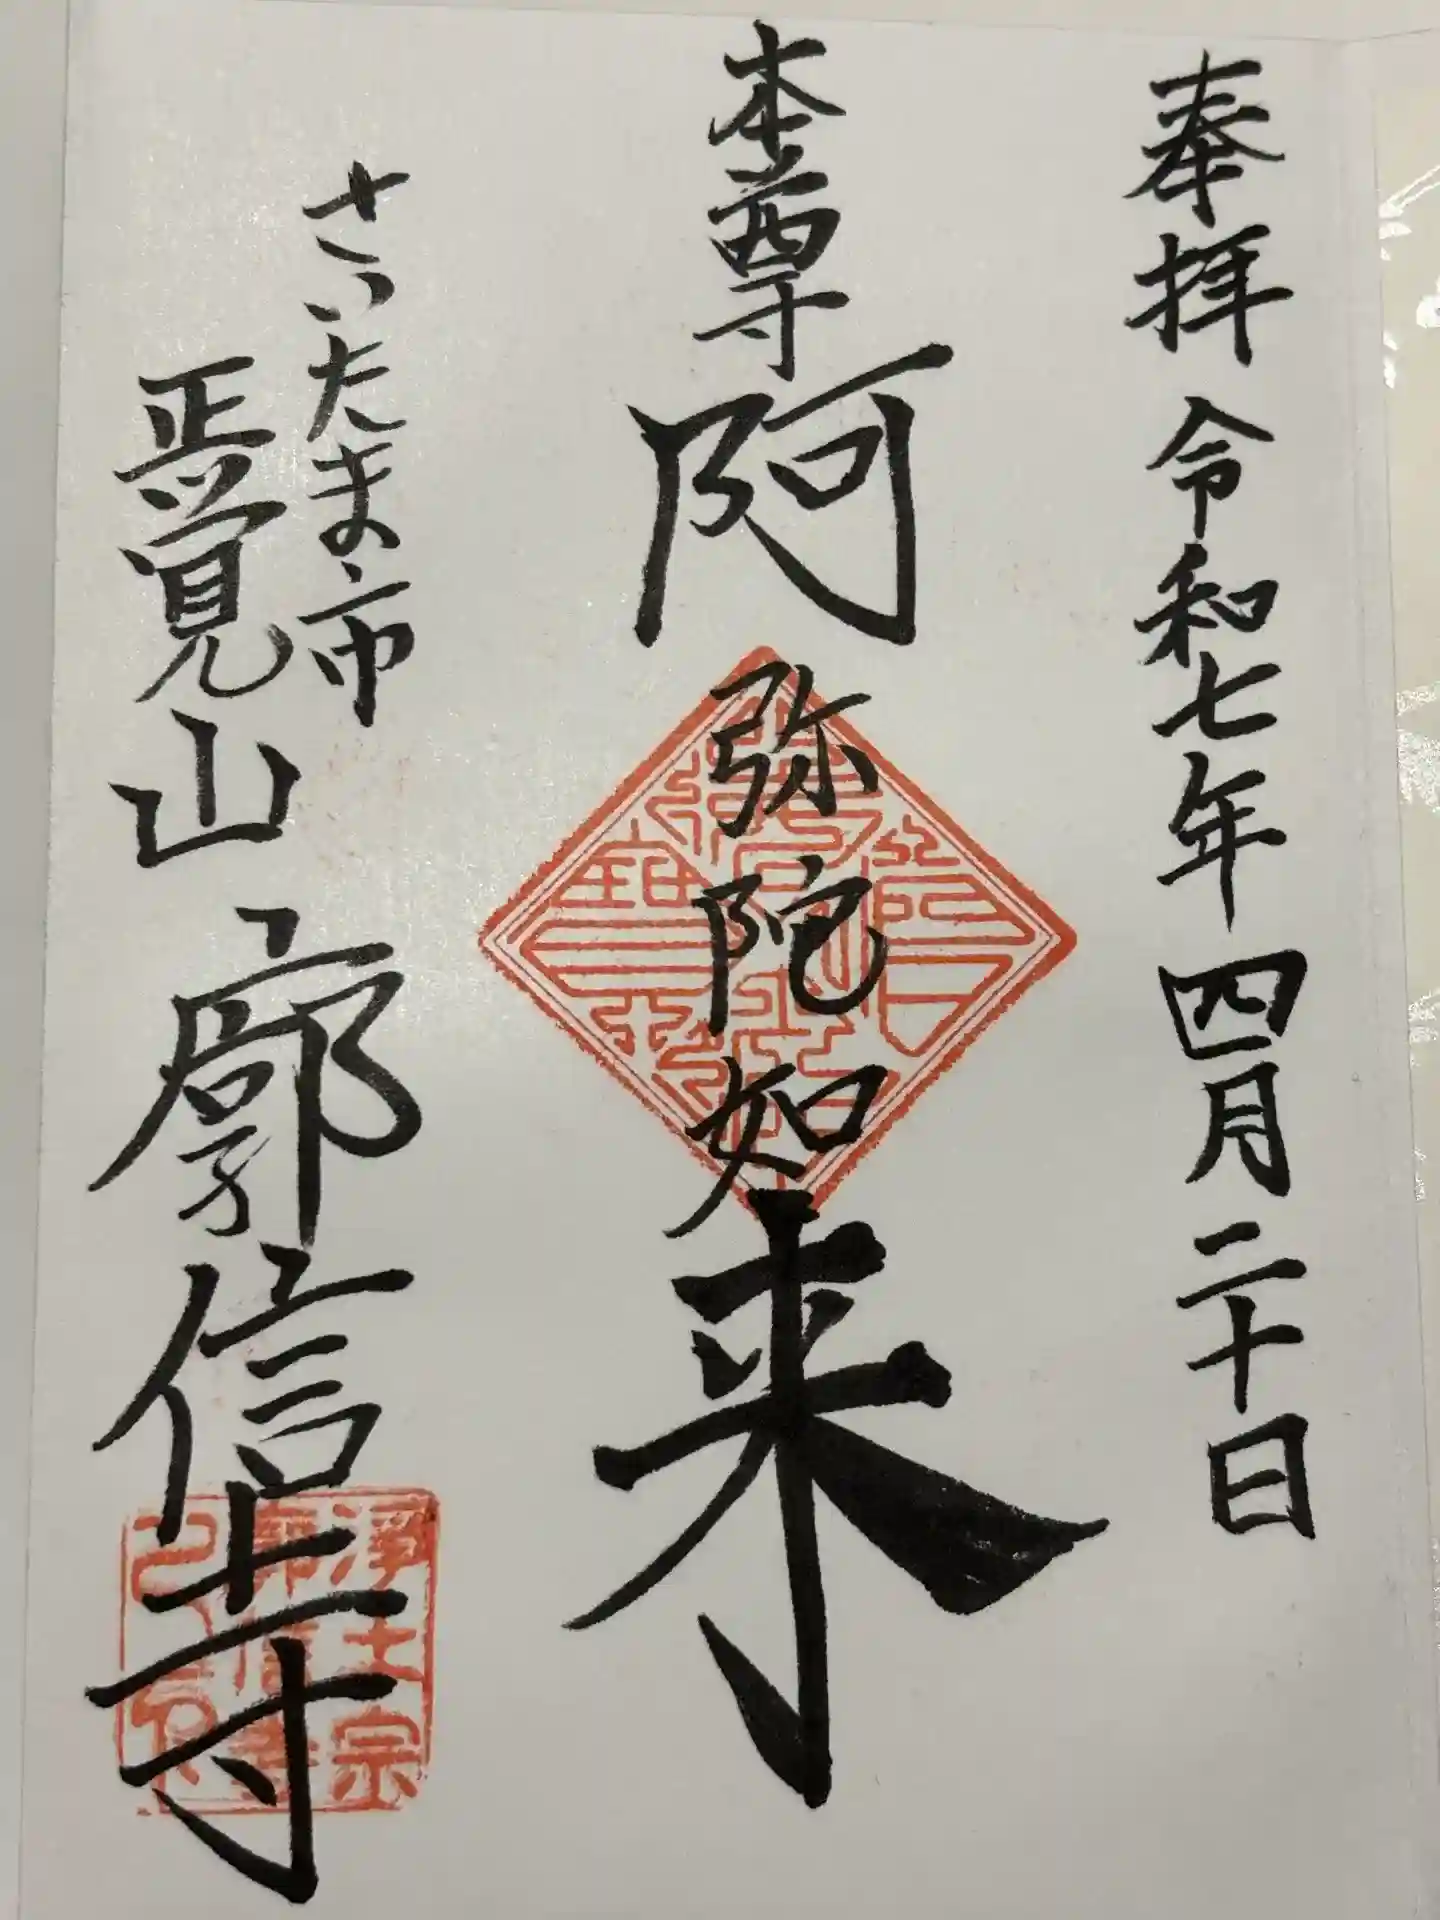 奉拝 令和七年四月二十日
本尊 阿弥陀如来
さいたま市
正覚山 廓信寺
浄土宗
廓信寺